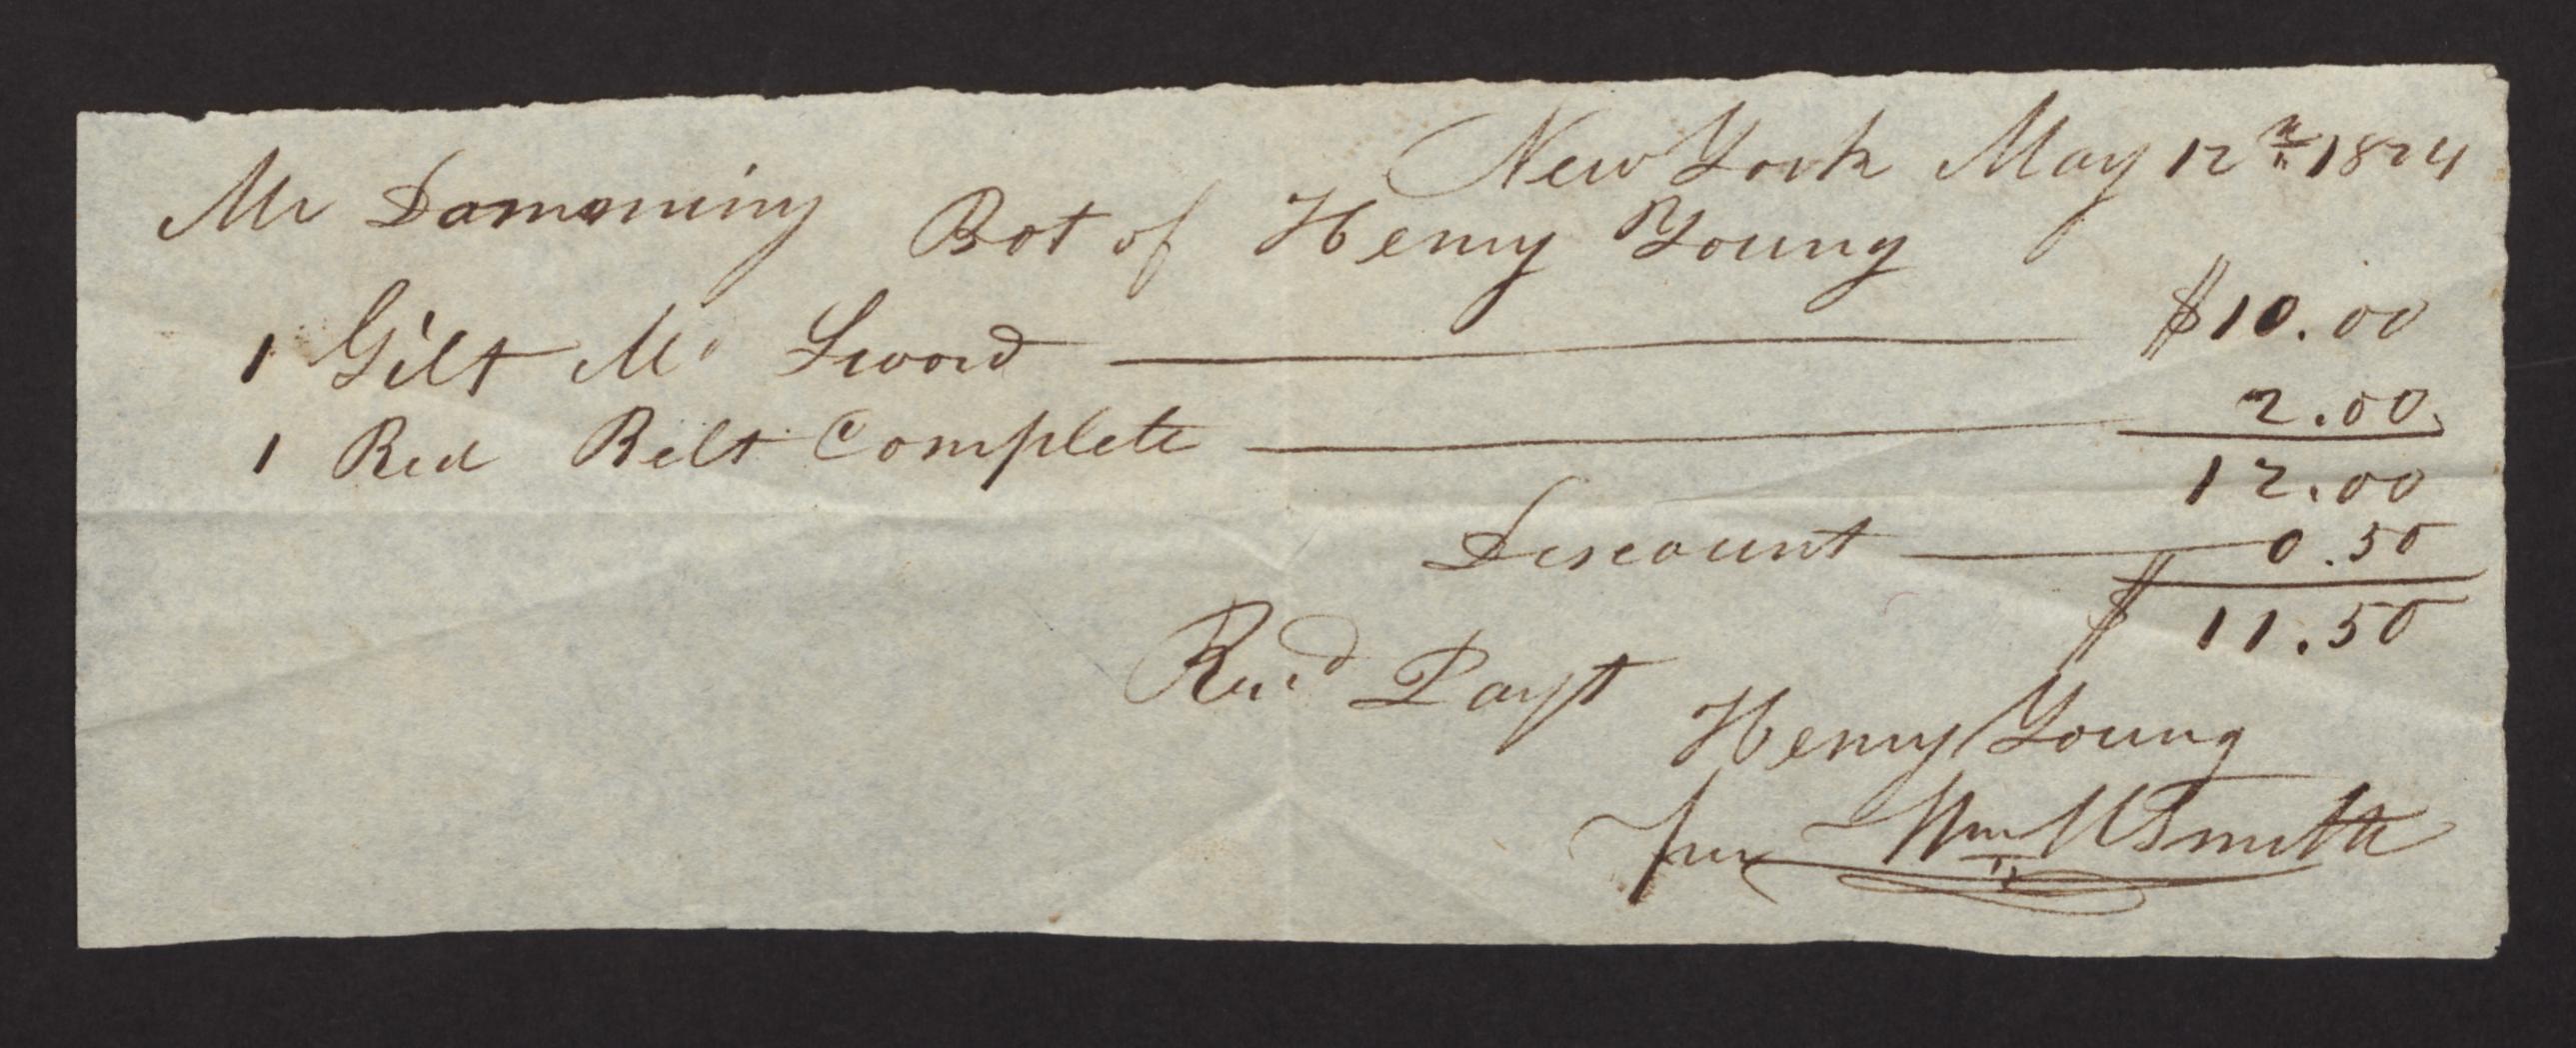 New York May 12th 1824
Mr Damominy Bot of Henry Young
1 Gilt Md Sword $10.00
1 Red Belt Complete 2.00
12.00
Discount 0.50
$11.50
Recd Payt
Henry Young
for Wm H Smith